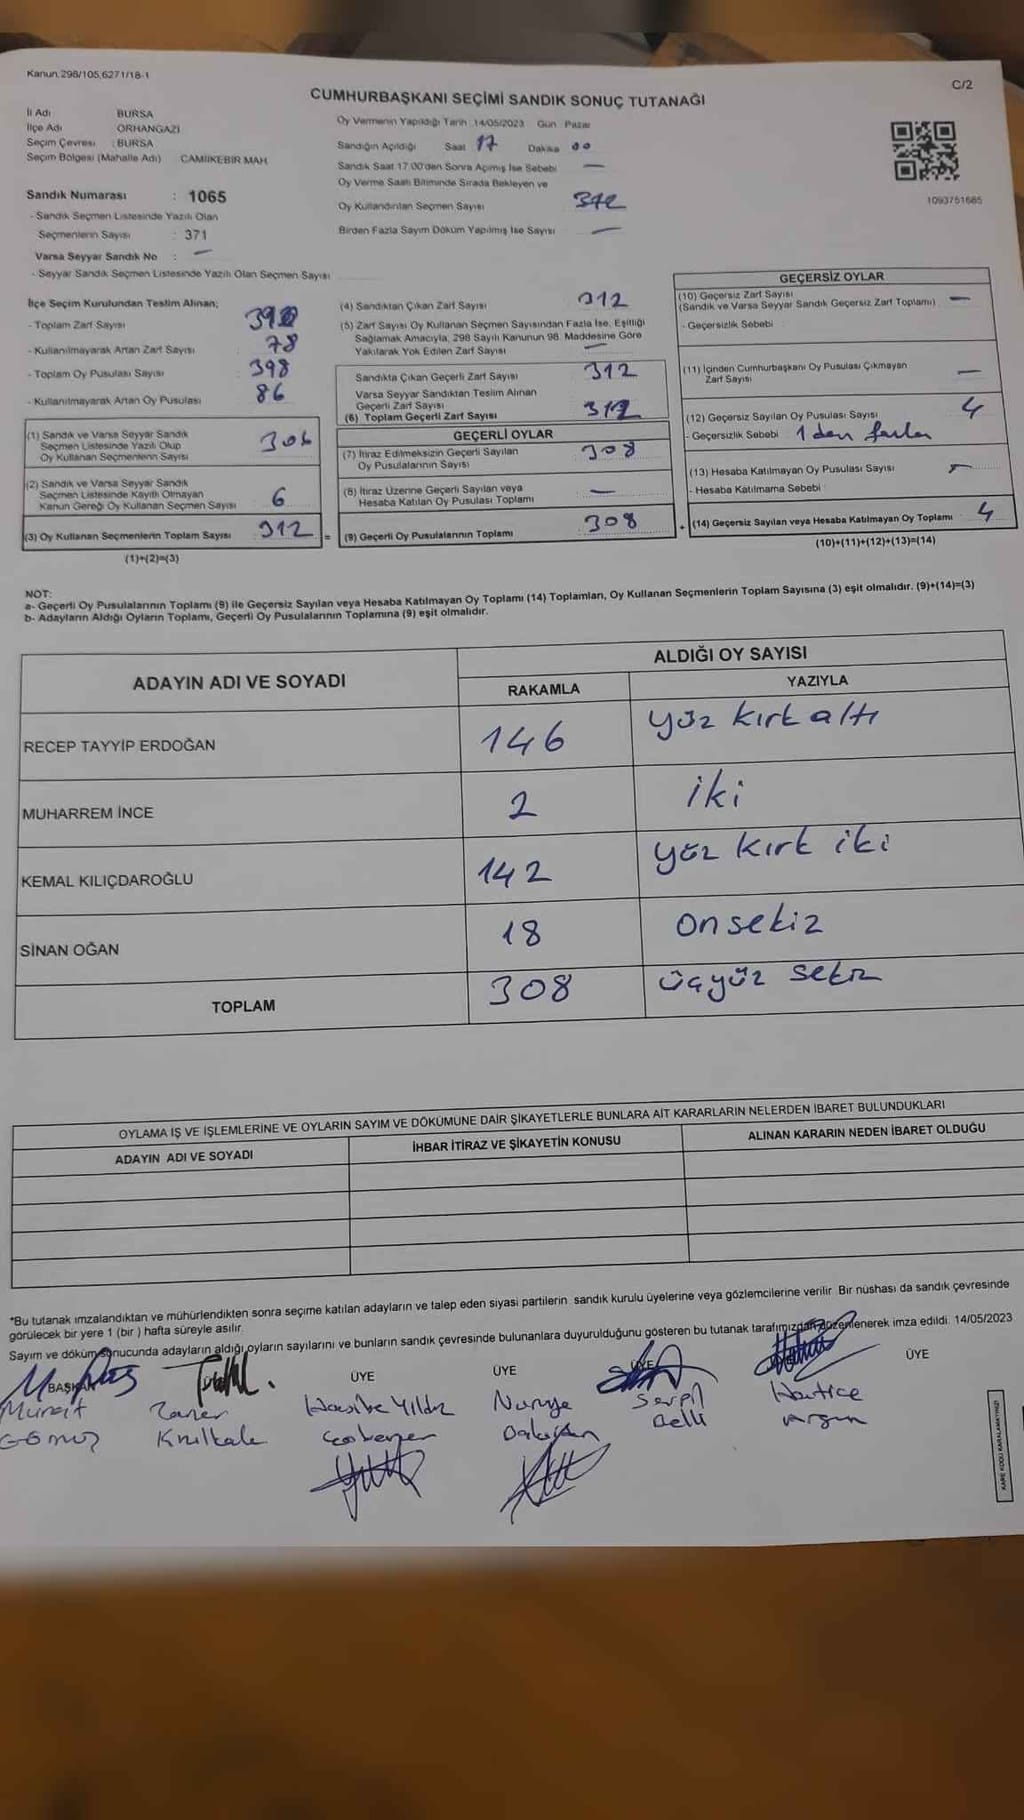 Kanun.298/105,6271/18-1
C/2
CUMHURBAŞKANI SEÇİMİ SANDIK SONUÇ TUTANAĞI
İl Adı BURSA
İlçe Adı ORHANGAZİ
Seçim Çevresi : BURSA
Seçim Bölgesi (Mahalle Adı) CAMİİKEBİR MAH.
Sandık Numarası : 1065
- Sandık Seçmen Listesinde Yazılı Olan
Seçmenlerin Sayısı : 371
Varsa Seyyar Sandık No : —
- Seyyar Sandık Seçmen Listesinde Yazılı Olan Seçmen Sayısı
Oy Vermenin Yapıldığı Tarih :14/05/2023 Gün Pazar
Sandığın Açıldığı Saat 17 Dakika 00
Sandık Saat 17:00'den Sonra Açılmış İse Sebebi —
Oy Verme Saati Bitiminde Sırada Bekleyen ve
Oy Kullandırılan Seçmen Sayısı
Birden Fazla Sayım Döküm Yapılmış İse Sayısı —
1093751685
İlçe Seçim Kurulundan Teslim Alınan;
- Toplam Zarf Sayısı
- Kullanılmayarak Artan Zarf Sayısı 78
- Toplam Oy Pusulası Sayısı 398
- Kullanılmayarak Artan Oy Pusulası 86
(1) Sandık ve Varsa Seyyar Sandık
Seçmen Listesinde Yazılı Olup
Oy Kullanan Seçmenlerin Sayısı 306
(2) Sandık ve Varsa Seyyar Sandık
Seçmen Listesinde Kayıtlı Olmayan
Kanun Gereği Oy Kullanan Seçmen Sayısı 6
(3) Oy Kullanan Seçmenlerin Toplam Sayısı 312 =
(1)+(2)=(3)
(4) Sandıktan Çıkan Zarf Sayısı 312
(5) Zarf Sayısı Oy Kullanan Seçmen Sayısından Fazla İse, Eşitliği
Sağlamak Amacıyla, 298 Sayılı Kanunun 98. Maddesine Göre
Yakılarak Yok Edilen Zarf Sayısı —
Sandıkta Çıkan Geçerli Zarf Sayısı 312
Varsa Seyyar Sandıktan Teslim Alınan
Geçerli Zarf Sayısı
(6) Toplam Geçerli Zarf Sayısı 312
GEÇERLİ OYLAR
(7) İtiraz Edilmeksizin Geçerli Sayılan
Oy Pusulalarının Sayısı 308
(8) İtiraz Üzerine Geçerli Sayılan veya
Hesaba Katılan Oy Pusulası Toplamı —
(9) Geçerli Oy Pusulalarının Toplamı 308 +
GEÇERSİZ OYLAR
(10) Geçersiz Zarf Sayısı
(Sandık ve Varsa Seyyar Sandık Geçersiz Zarf Toplamı) —
- Geçersizlik Sebebi
(11) İçinden Cumhurbaşkanı Oy Pusulası Çıkmayan
Zarf Sayısı —
(12) Geçersiz Sayılan Oy Pusulası Sayısı 4
- Geçersizlik Sebebi 1 den fazla
(13) Hesaba Katılmayan Oy Pusulası Sayısı —
- Hesaba Katılmama Sebebi
(14) Geçersiz Sayılan veya Hesaba Katılmayan Oy Toplamı 4
(10)+(11)+(12)+(13)=(14)
NOT:
a- Geçerli Oy Pusulalarının Toplamı (9) ile Geçersiz Sayılan veya Hesaba Katılmayan Oy Toplamı (14) Toplamları, Oy Kullanan Seçmenlerin Toplam Sayısına (3) eşit olmalıdır. (9)+(14)=(3)
b- Adayların Aldığı Oyların Toplamı, Geçerli Oy Pusulalarının Toplamına (9) eşit olmalıdır.
ADAYIN ADI VE SOYADI ALDIĞI OY SAYISI
RAKAMLA YAZIYLA
RECEP TAYYİP ERDOĞAN 146 yüz kırk altı
MUHARREM İNCE 2 iki
KEMAL KILIÇDAROĞLU 142 yüz kırk iki
SİNAN OĞAN 18 onsekiz
TOPLAM 308 üçyüz sekiz
OYLAMA İŞ VE İŞLEMLERİNE VE OYLARIN SAYIM VE DÖKÜMÜNE DAİR ŞİKAYETLERLE BUNLARA AİT KARARLARIN NELERDEN İBARET BULUNDUKLARI
ADAYIN ADI VE SOYADI İHBAR İTİRAZ VE ŞİKAYETİN KONUSU ALINAN KARARIN NEDEN İBARET OLDUĞU
*Bu tutanak imzalandıktan ve mühürlendikten sonra seçime katılan adayların ve talep eden siyasi partilerin sandık kurulu üyelerine veya gözlemcilerine verilir. Bir nüshası da sandık çevresinde
görülecek bir yere 1 (bir) hafta süreyle asılır.
Sayım ve döküm sonucunda adayların aldığı oyların sayılarını ve bunların sandık çevresinde bulunanlara duyurulduğunu gösteren bu tutanak tarafımızdan düzenlenerek imza edildi. 14/05/2023
BAŞKAN ÜYE ÜYE ÜYE ÜYE
Murat Taner Hasibe Yıldız Nuriye Serpil Hatice
Kızılkale Belli
KARE KODU KARALAMAYINIZ